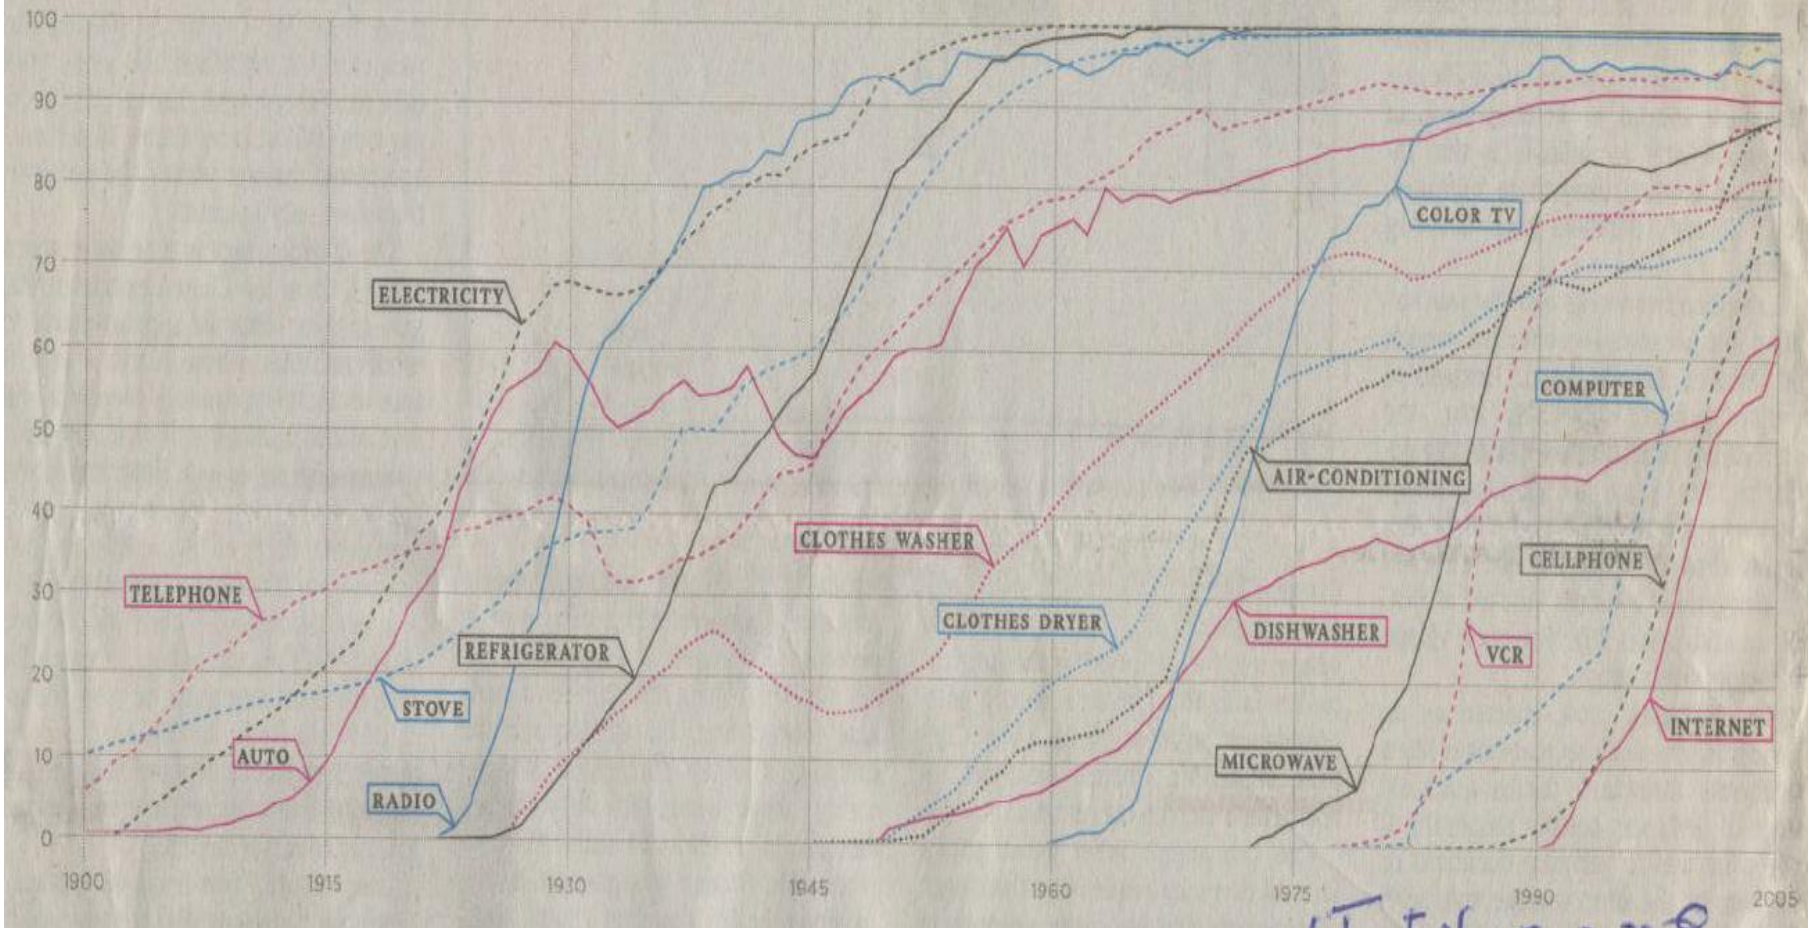 100
90
80
70
60
50
40
30
20
10
0
ELECTRICITY
COLOR TV
COMPUTER
AIR-CONDITIONING
CLOTHES WASHER
CELLPHONE
TELEPHONE
CLOTHES DRYER
DISHWASHER
REFRIGERATOR
VCR
STOVE
INTERNET
AUTO
MICROWAVE
RADIO
1900 1915 1930 1945 1960 1975 1990 2005